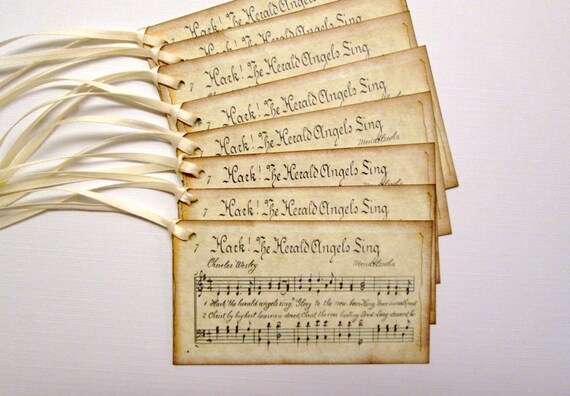 Hark! The Herald Angels Sing
Hark! The Herald Angels Sing
7 Hark! The Herald Angels Sing
7 Hark! The Herald Angels Sing
7 Hark! The Herald Angels Sing
Mendelssohn
7 Hark! The Herald Angels Sing
7 Hark! The Herald Angels Sing
7 Hark! The Herald Angels Sing
Charles Wesley
1 Hark! the herald angels sing, "Glory to the new-born King,
2 Christ by highest heaven adored, Christ the